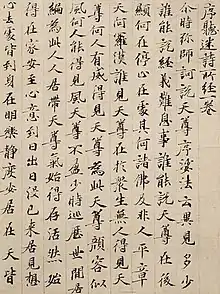 序聽迷詩所經一卷
尒時彌師訶說天尊序娑法云異見多少
誰能說經義難息事誰能說天尊在後
顯何在停止在處其何諸佛及非人平章
天阿羅漢誰見天尊在於衆生無人得見天
尊何人有威得見天尊為此天尊顏容似
風何人能得見風天尊不盈少時巡歷世間居
編為此人人居帶天尊氣始得存活然始
得在家安至心意到日出日沒已來居見想
心去處皆到身在明樂靜度安居在天皆